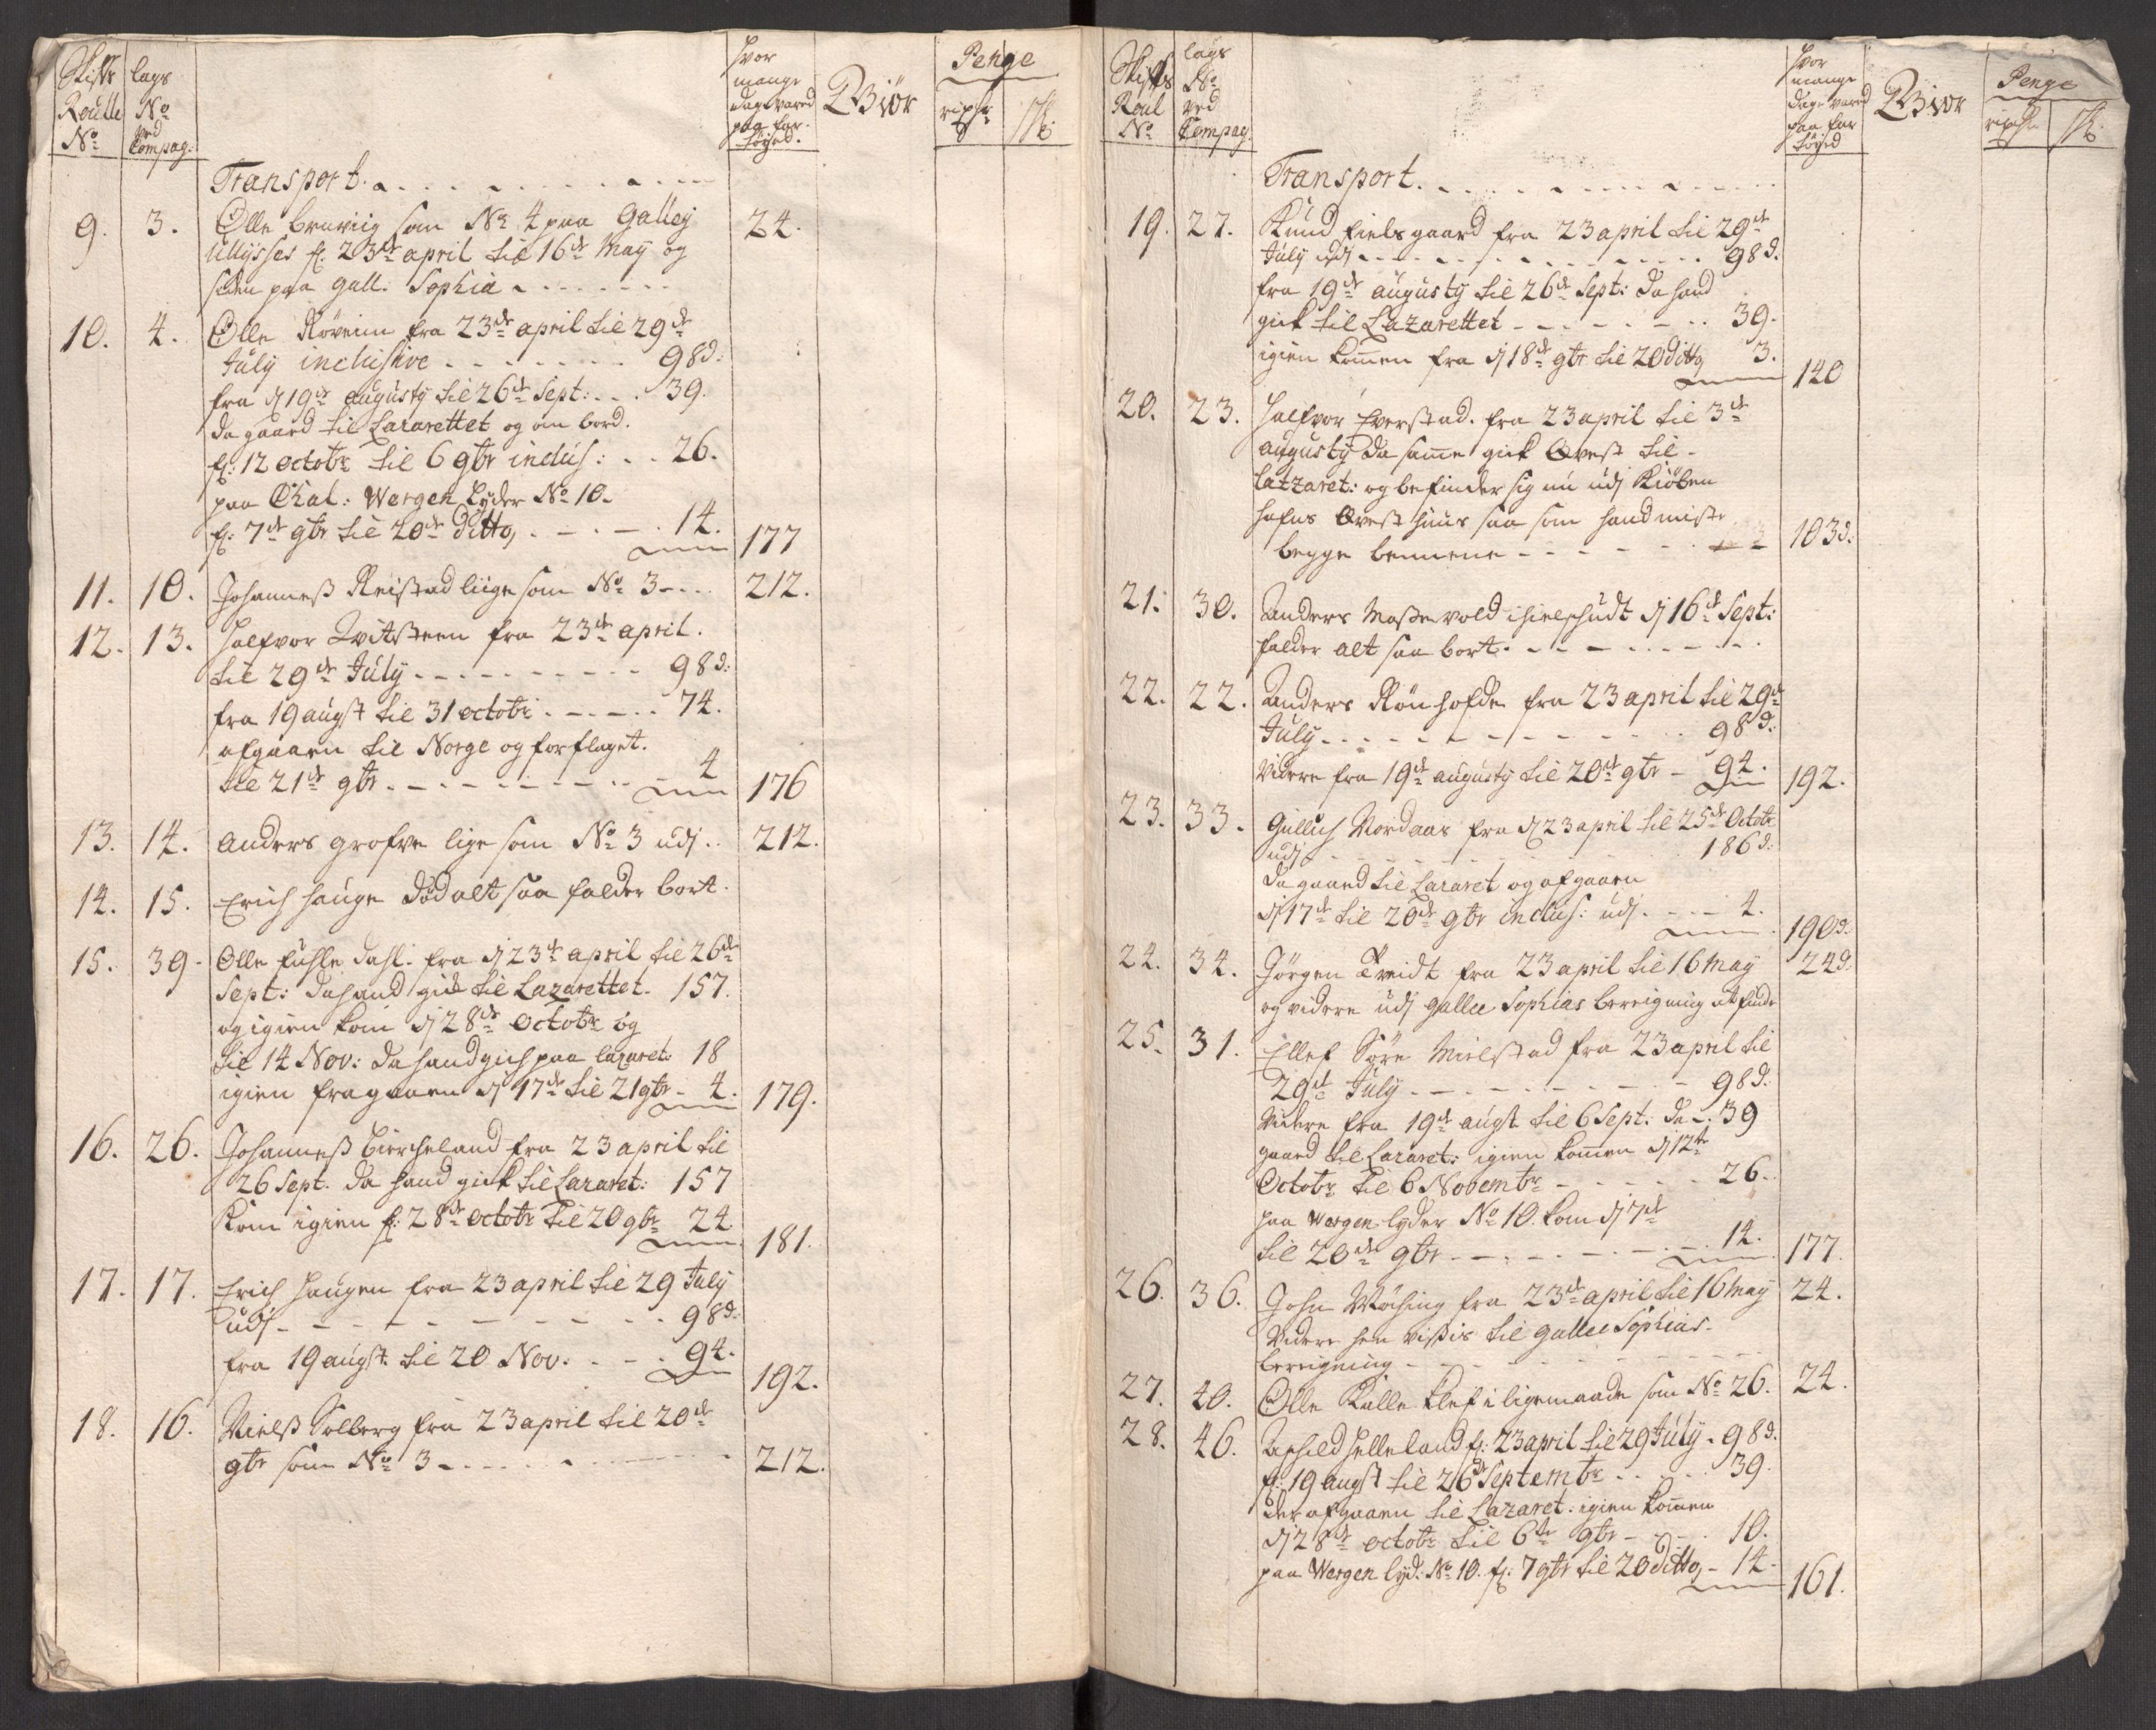 Skifs Roulle No
lags No ved Compag:
hvor mange dage vared paa far tøyed.
Bør
Penge
rixdr
sk:
Transport.
9. 3. Olle bruviig som No 4 paa Galley 24.
Ullysses fr. 23de april til 16de May og
siden paa gall. Sophia
10. 4. Olle Røveim fra 23de april til 29de
July inclusive 98d:
fra d 19de augusty til 26de Sept: 39.
da gaard til Lazarettet og om bord.
fr: 12 octobr til 6 9br inclus: 26.
paa Chat: Wergen lyder No 10.
fr: 7de 9br til 20de ditto, 14. 177
11. 10. Johanness Reistad liige som No 3 212.
12. 13. Halfvor Qvitsteen fra 23de april.
til 29de July 98d:
fra 19 augst til 31 octobr 74.
afgaaen til Norge og forflaget.
til 21de 9br 4 176
13. 14. Anders grofve lige som No 3 udj 212.
14. 15. Erich Hauge død alt saa falder bort.
15. 39. Olle fuhle dahl: fra d 23de april til 26de
Sept: da hand gik til Lazarettet. 157.
og igien kom d 28de octobr og
til 14 Nov: da hand gich paa lazaret: 18
igien fragaaen d 17de til 21 9br 4. 179.
16. 26. Johanness Bircheland fra 23 april til
26 Sept. da hand gik til Lazaret: 157
Kom igien fr: 28de octobr til 20 9br 24 181.
17. 17. Erich Haugen fra 23 april til 29 July
udj 98d:
fra 19 augst. til 20 Nov: 94. 192.
18. 16. Nielss Solberg fra 23 april til 20de
9br som No 3 212.
Skifs Roul No
lags No ved Compag.
hvor mange dage vared paa far tøyed
Bør
Penge
rixdr
sk:
Transport.
19. 27. Knud fielsgaard fra 23 april til 29de
July udj 98d.
fra 19de augusty til 26de Sept: da hand
gick til Lazarettet 39.
igien kommen fra d 18de 9br til 20 ditto 3. 140
20. 23. Halfvor Everstad. fra 23 april til 3de
augusty da samme gick Qvest til
Latzaret: og befinder sig nu udj Kiöben
hafns Qvest huus saa som hand miste
begge beenene 103d:
21. 30. Anders Massevold ihielschudt d 16de Sept:
falder alt saa bort.
22. 22. Anders Rönhofde fra 23 april til 29de
July 98d:
Videre fra 19de augusty til 20de 9br 94. 192.
23. 33. Gullich Nordaas fra d 23 april til 25de Octobr
udj 186d:
da gaaed til Lazaret og afgaaen
d 17de til 20de 9br inclus: udj 4. 190d.
24. 34. Jørgen Treidt fra 23 april til 16 May 24d.
og videre udj gallee Sophias bereigning at finde
25. 31. Ellef Søre Mielstad fra 23 april til
29de July 98d:
Videre fra 19de augst til 6 Sept: da 39
gaaed til Lazaret: igien kommen d 12te
Octobr til 6 Novembr 26.
paa Wergen lyder No 10. kom d 7de
til 20de 9br 14. 177.
26. 36. John Møching fra 23de april til 16 May 24.
Videre hen visis til gallee Sophias
bereigning
27. 40. Olle Kalle Klef i ligemaade som No 26. 24.
28. 46. Aschild Helleland fr: 23 april til 29 July 98d.
fr: 19 augst til 26de Septembr 39.
der afgaaen til Lazaret: igien kommen
d 28de octobr til 6te 9br 10.
paa Wergen lyd: No 10. fr: 7 9br til 20 ditto, 14. 161.